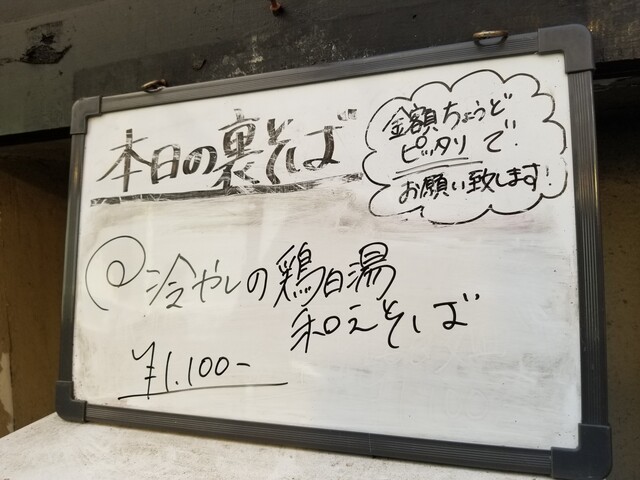 本日の裏そば
金額ちょうど
ピッタリで!
お願い致します!
冷やしの鶏白湯
和えそば
¥1.100-